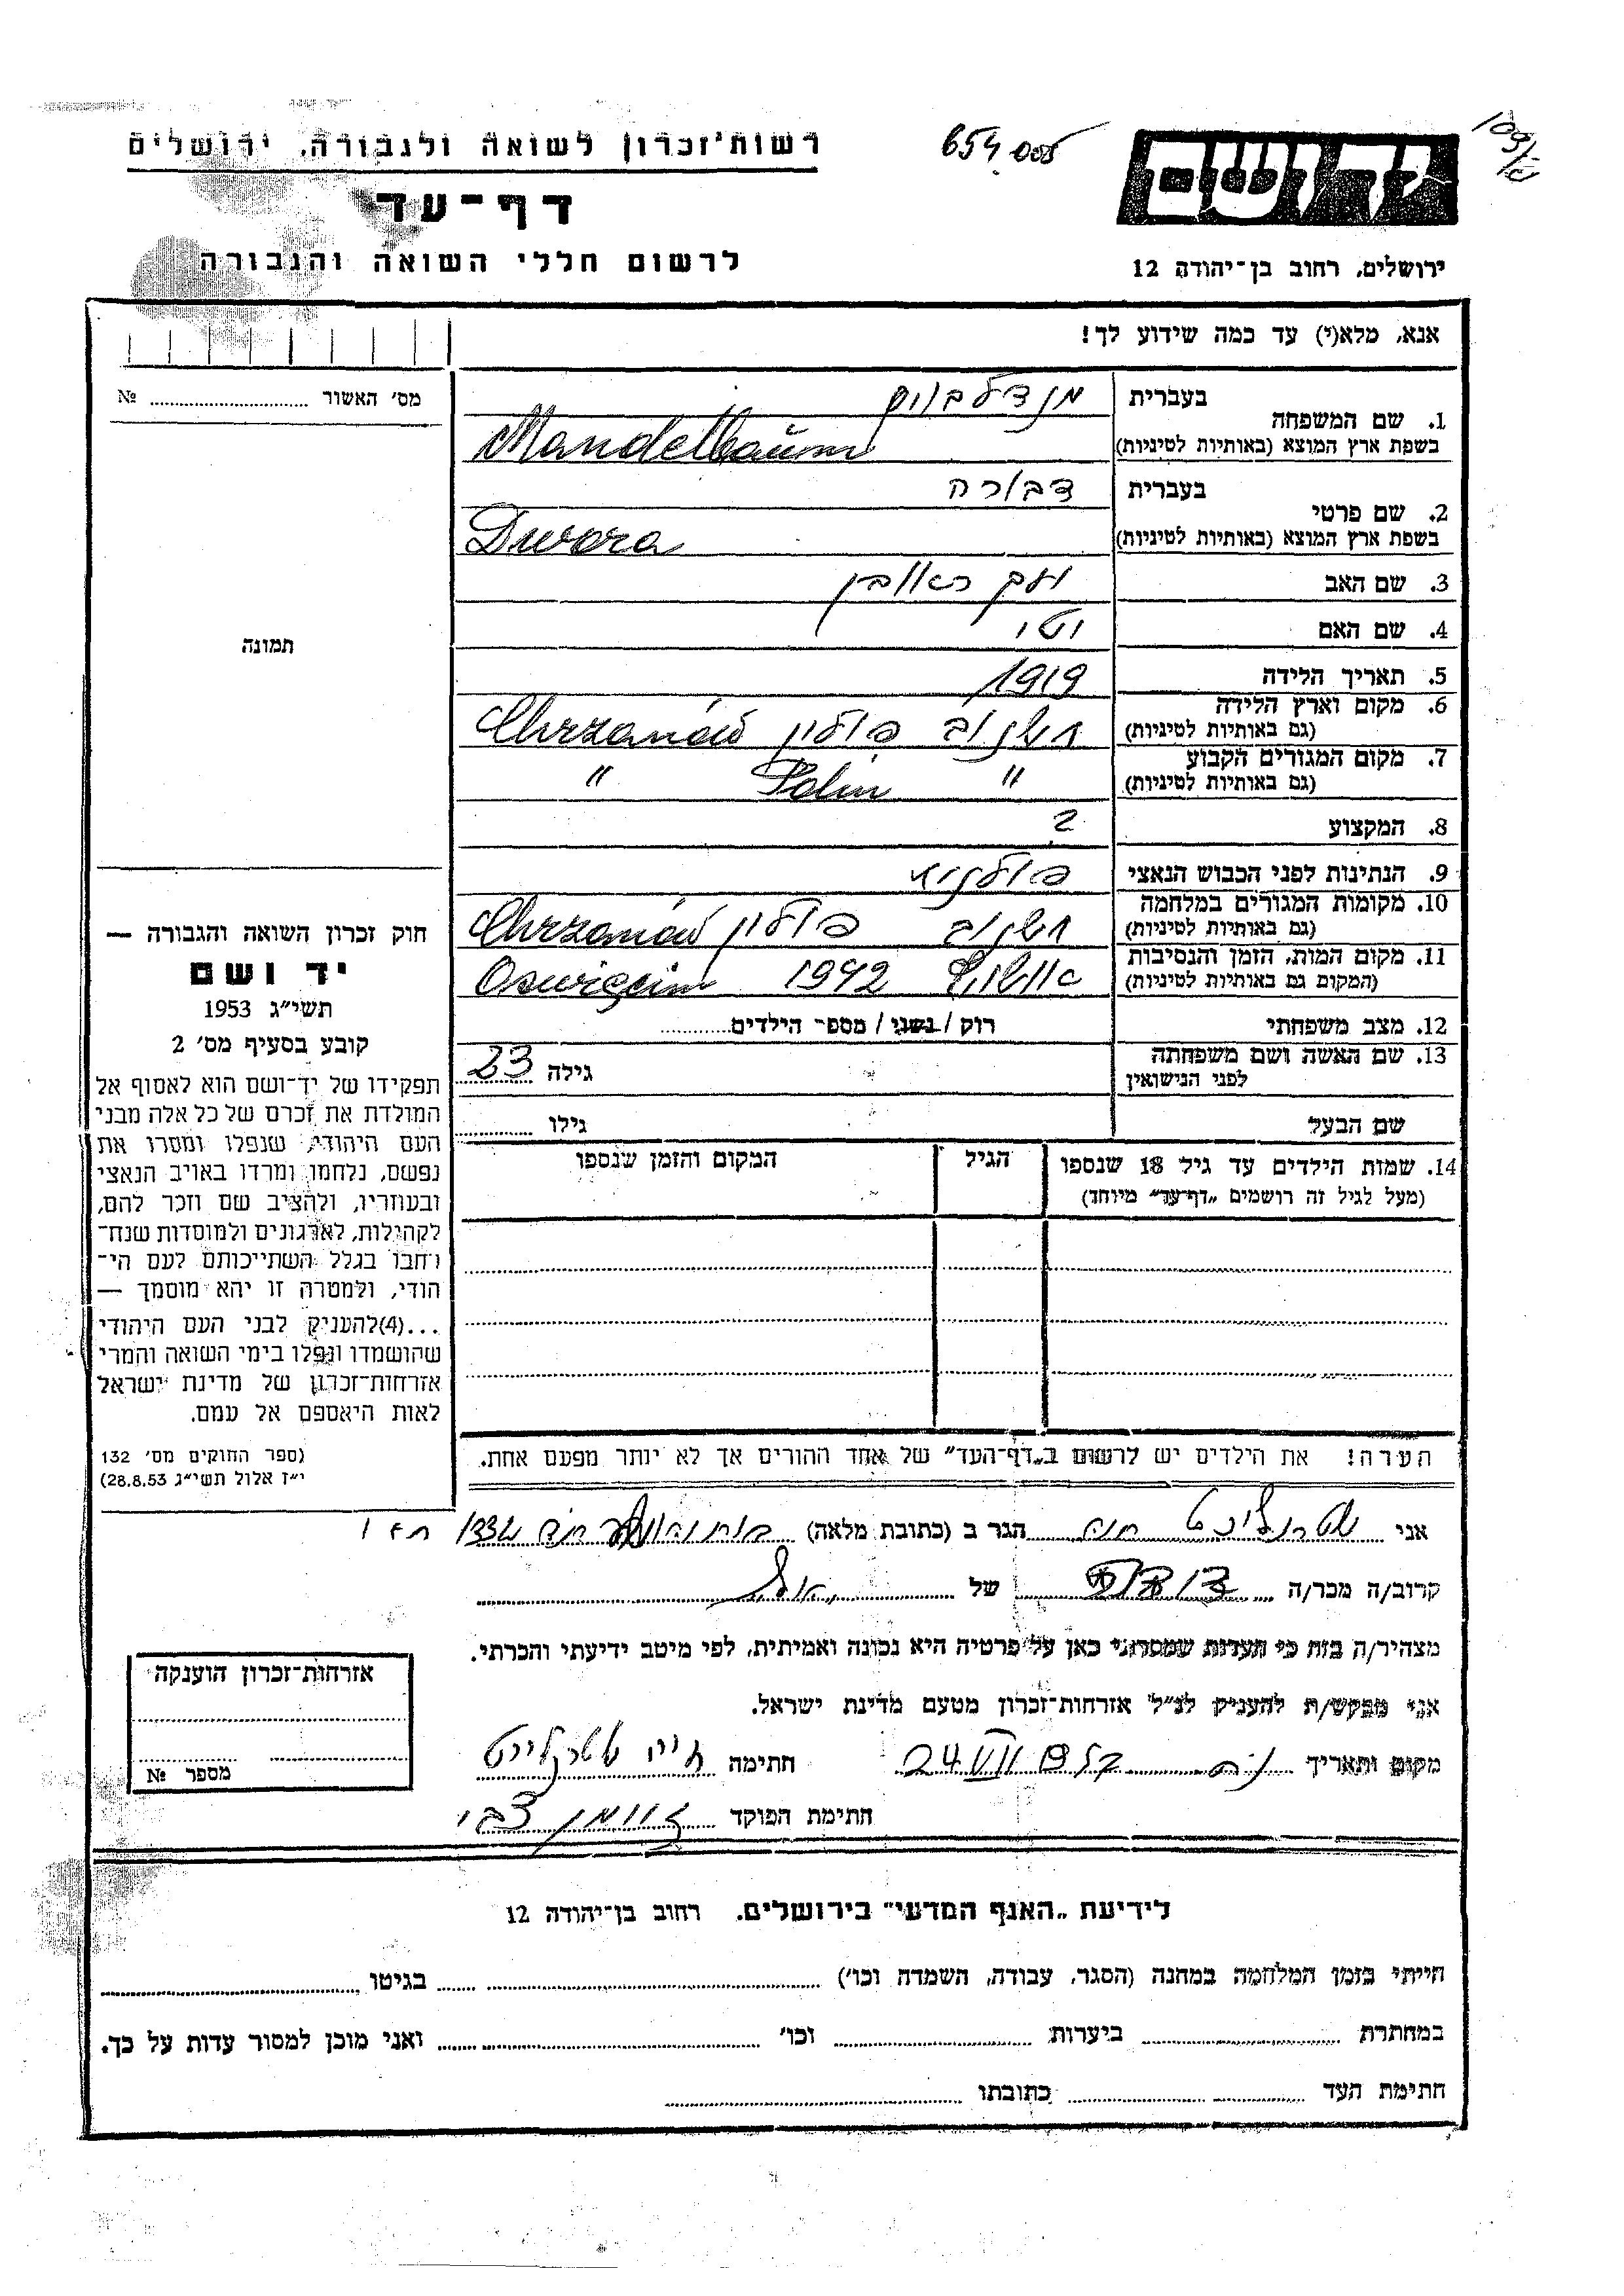 רשות־זכרון לשואה ולגבורה, ירושלים
654005
ידושם
דף־עד
לרשום חללי השואה והגבורה
ירושלים, רחוב בן־יהודה 12
אנא, מלא(י) עד כמה שידוע לך!
מס׳ האשור № 
1. שם המשפחה
בעברית מנדלבוים
בשפת ארץ המוצא (באותיות לטיניות) Mandelbaum
2. שם פרטי
בעברית דבורה
בשפת ארץ המוצא (באותיות לטיניות) Dwora
3. שם האב יעקב ראובן
4. שם האם
5. תאריך הלידה 1919
6. מקום וארץ הלידה
(גם באותיות לטיניות) חשנוב פולין Chrzanów
7. מקום המגורים הקבוע
(גם באותיות לטיניות) " Polin "
8. המקצוע ?
9. הנתינות לפני הכבוש הנאצי פולנית
10. מקומות המגורים במלחמה
(גם באותיות לטיניות) חשנוב פולין Chrzanów
11. מקום המות, הזמן והנסיבות
(המקום גם באותיות לטיניות) אושויץ 1942 Oswięcim
12. מצב משפחתי רוק / נשוי / מספר הילדים
13. שם האשה ושם משפחתה
לפני הנישואין גילה 23
שם הבעל גילו
14. שמות הילדים עד גיל 18 שנספו הגיל המקום והזמן שנספו
(מעל לגיל זה רושמים „דף־עד״ מיוחד)
הערה! את הילדים יש לרשום ב„דף־העד״ של אחד ההורים אך לא יותר מפעם אחת.
תמונה
חוק זכרון השואה והגבורה —
יד ושם
תשי״ג 1953
קובע בסעיף מס׳ 2
תפקידו של יד־ושם הוא לאסוף אל
המולדת את זכרם של כל אלה מבני
העם היהודי, שנפלו ומסרו את
נפשם, נלחמו ומרדו באויב הנאצי
ובעוזריו, ולהציב שם וזכר להם,
לקהילות, לארגונים ולמוסדות שנח־
רחבו בגלל השתייכותם לעם הי־
הודי, ולמטרה זו יהא מוסמך —
...(4)להעניק לבני העם היהודי
שהושמדו ונפלו בימי השואה והמרי
אזרחות־זכרון של מדינת ישראל
לאות היאספם אל עמם.
(ספר החוקים מס׳ 132
י״ז אלול תשי״ג 28.8.53)
אני הגר ב (כתובת מלאה)
קרוב/ה מכר/ה של
מצהיר/ה בזה כי העדות שמסרתי כאן על פרטיה היא נכונה ואמיתית, לפי מיטב ידיעתי והכרתי.
אני מבקש/ת להעניק לנ״ל אזרחות־זכרון מטעם מדינת ישראל.
מקום ותאריך חתימה חיה
חתימת הפוקד צבי
אזרחות־זכרון הוענקה
מספר №
לידיעת „האגף המדעי״ בירושלים, רחוב בן־יהודה 12
הייתי בזמן המלחמה במחנה (הסגר, עבודה, השמדה וכו׳) בגיטו
במחתרת ביערות וכו׳ ואני מוכן למסור עדות על כך.
חתימת העד כתובתו